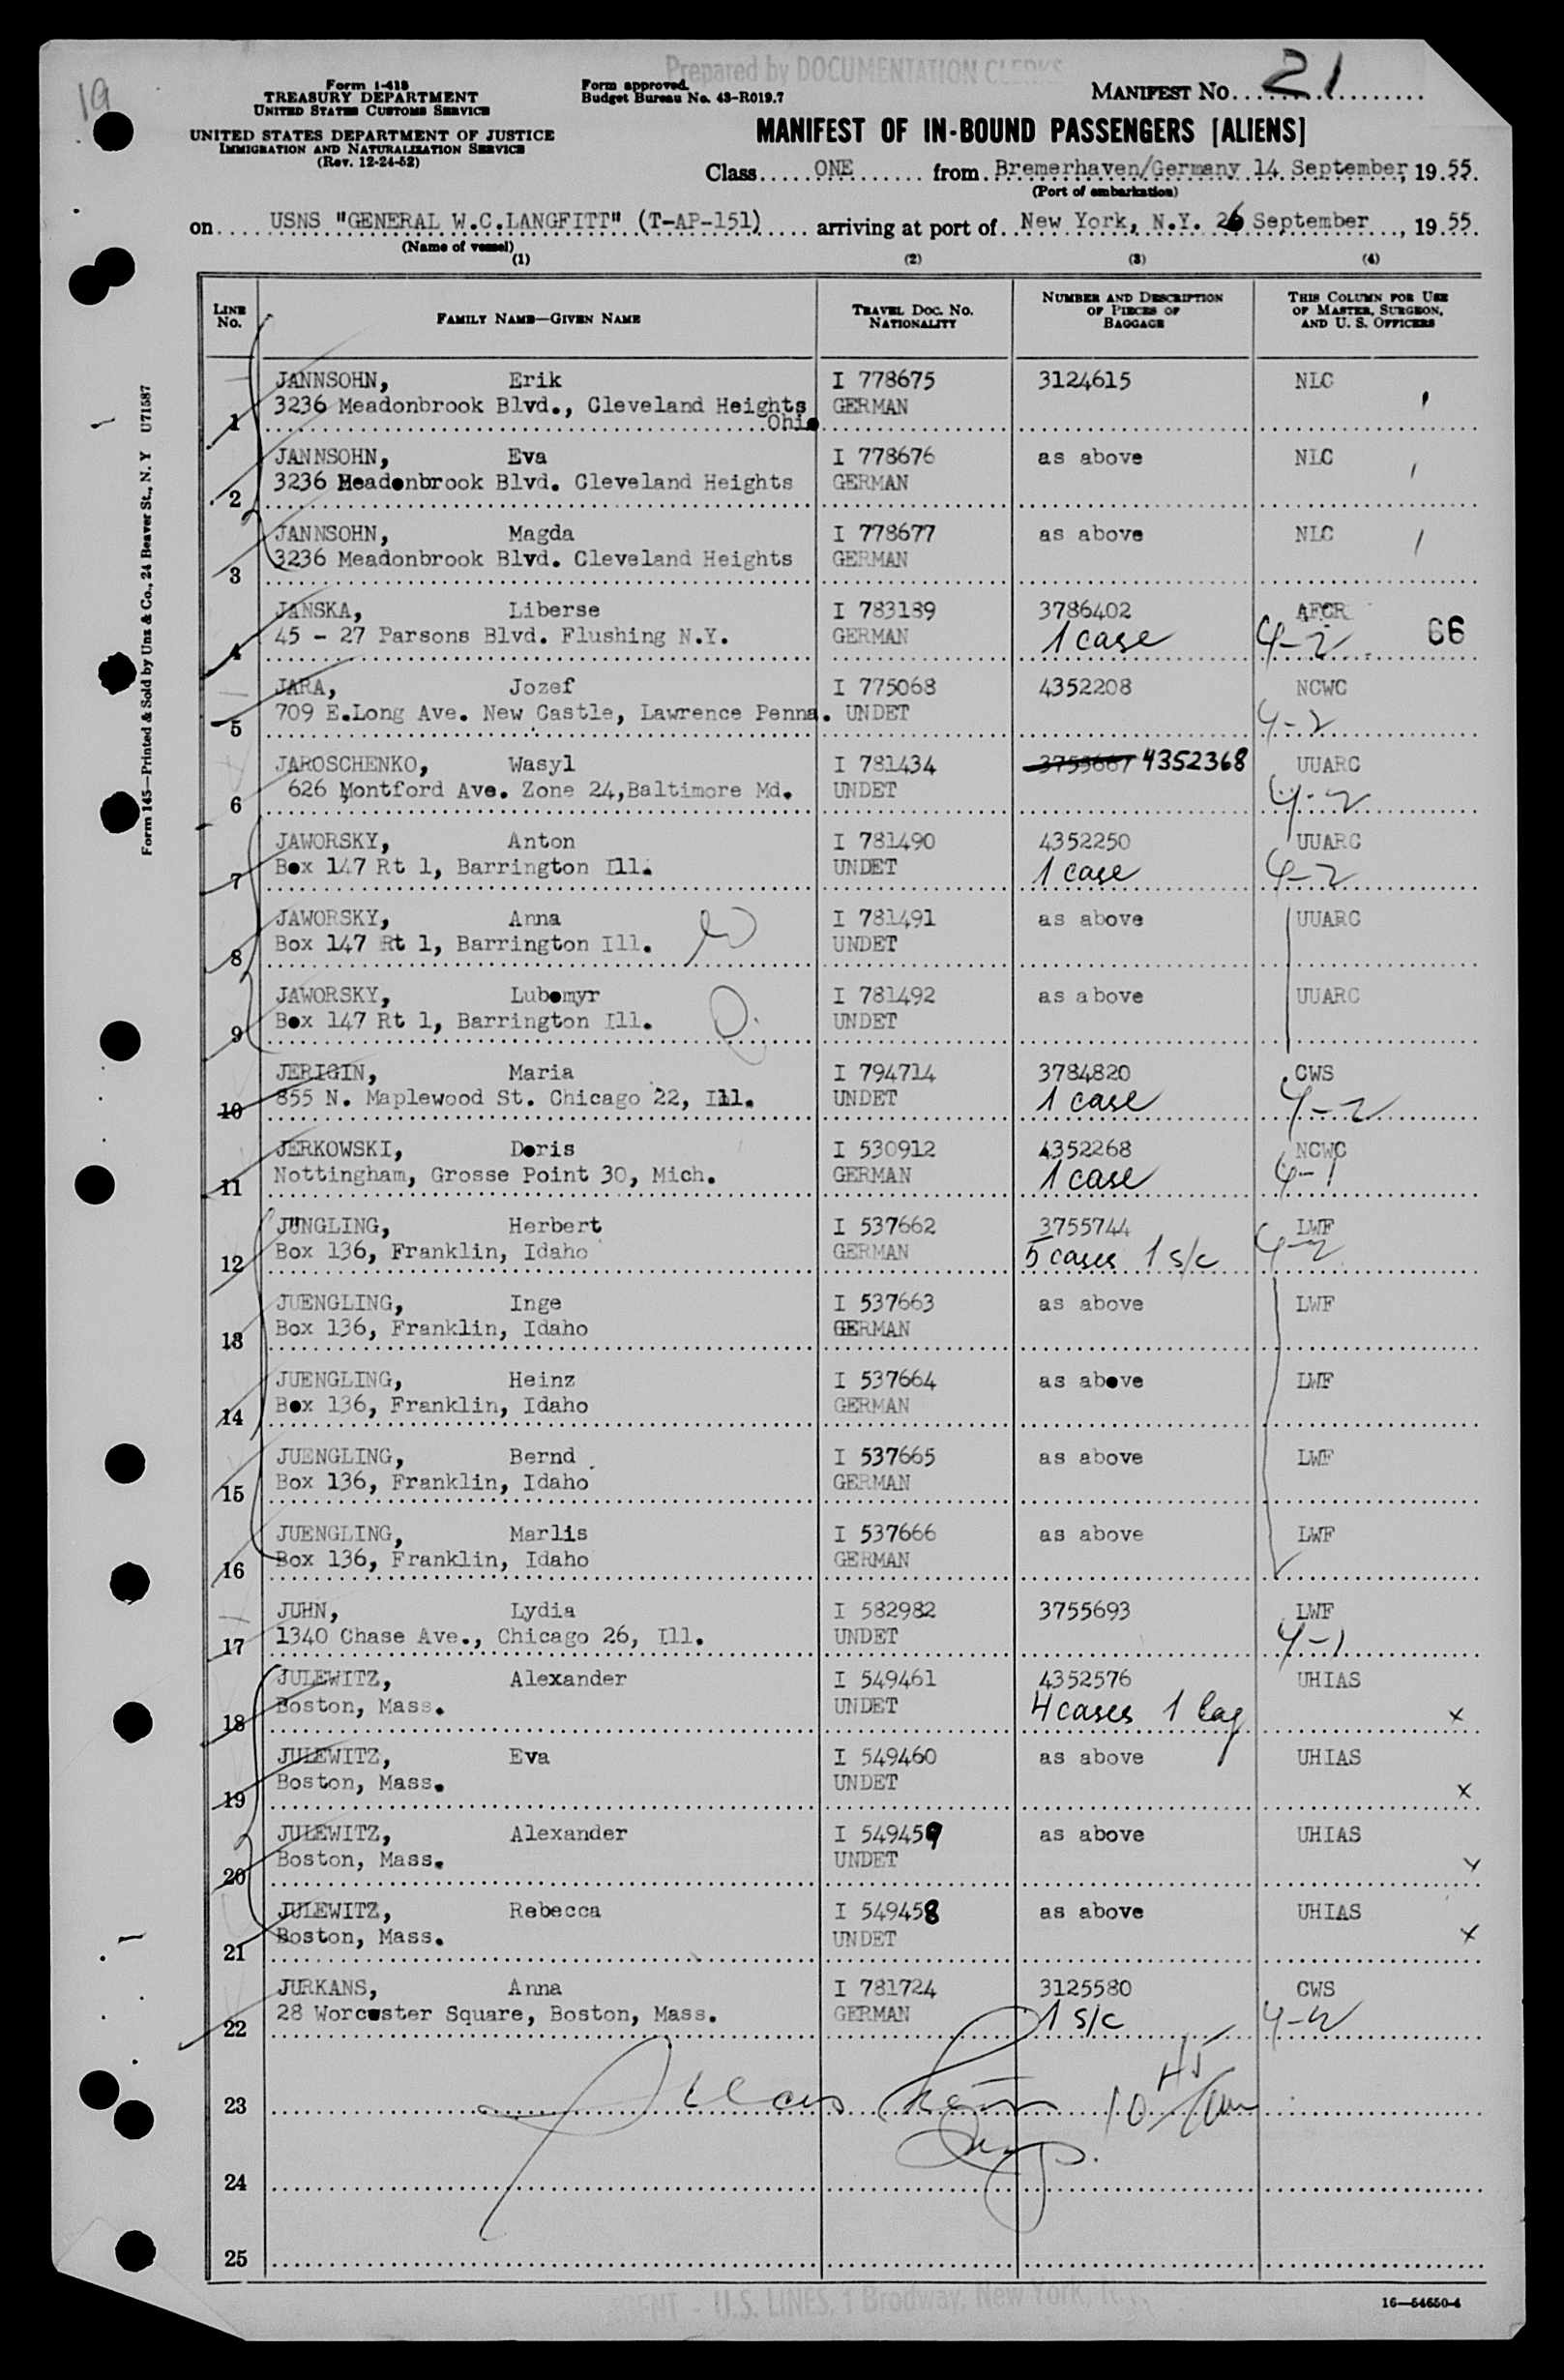 19
Prepared by DOCUMENTATION CLERKS
Form I-418
TREASURY DEPARTMENT
UNITED STATES CUSTOMS SERVICE
UNITED STATES DEPARTMENT OF JUSTICE
IMMIGRATION AND NATURALIZATION SERVICE
(Rev. 12-24-52)
Form approved.
Budget Bureau No. 43-R019.7
MANIFEST NO. 21
MANIFEST OF IN-BOUND PASSENGERS [ALIENS]
Class ONE from Bremerhaven/Germany 14 September, 19 55
(Port of embarkation)
on USNS "GENERAL W.C.LANGFITT" (T-AP-151) arriving at port of New York, N.Y. 26 September, 19 55
(Name of vessel)
(1) (2) (3) (4)
LINE NO. FAMILY NAME—GIVEN NAME TRAVEL DOC. NO. NATIONALITY NUMBER AND DESCRIPTION OF PIECES OF BAGGAGE THIS COLUMN FOR USE OF MASTER, SURGEON, AND U. S. OFFICERS
JANNSOHN, Erik I 778675 3124615 NLC
3236 Meadonbrook Blvd., Cleveland Heights GERMAN
1 Ohio
JANNSOHN, Eva I 778676 as above NLC
2 3236 Meadonbrook Blvd. Cleveland Heights GERMAN
JANNSOHN, Magda I 778677 as above NLC
3 3236 Meadonbrook Blvd. Cleveland Heights GERMAN
JANSKA, Liberse I 783189 3786402 AFCR
4 45 - 27 Parsons Blvd. Flushing N.Y. GERMAN 1 case 4-2 66
JARA, Jozef I 775068 4352208 NCWC
5 709 E.Long Ave. New Castle, Lawrence Penna. UNDET 4-2
JAROSCHENKO, Wasyl I 781434 3755667 4352368 UUARC
6 626 Montford Ave. Zone 24,Baltimore Md. UNDET 4-2
JAWORSKY, Anton I 781490 4352250 UUARC
7 Box 147 Rt 1, Barrington Ill. UNDET 1 case 4-2
JAWORSKY, Anna I 781491 as above UUARC
8 Box 147 Rt 1, Barrington Ill. UNDET
JAWORSKY, Lubomyr I 781492 as above UUARC
9 Box 147 Rt 1, Barrington Ill. UNDET
JERIGIN, Maria I 794714 3784820 CWS
10 855 N. Maplewood St. Chicago 22, Ill. UNDET 1 case 4-2
JERKOWSKI, Doris I 530912 4352268 NCWC
11 Nottingham, Grosse Point 30, Mich. GERMAN 1 case 4-1
JÜNGLING, Herbert I 537662 3755744 LWF
12 Box 136, Franklin, Idaho GERMAN 5 cases 1 s/c 4-2
JUENGLING, Inge I 537663 as above LWF
13 Box 136, Franklin, Idaho GERMAN
JUENGLING, Heinz I 537664 as above LWF
14 Box 136, Franklin, Idaho GERMAN
JUENGLING, Bernd I 537665 as above LWF
15 Box 136, Franklin, Idaho GERMAN
JUENGLING, Marlis I 537666 as above LWF
16 Box 136, Franklin, Idaho GERMAN
JUHN, Lydia I 582982 3755693 LWF
17 1340 Chase Ave., Chicago 26, Ill. UNDET 4-1
JULEWITZ, Alexander I 549461 4352576 UHIAS
18 Boston, Mass. UNDET 4 cases 1 bag x
JULEWITZ, Eva I 549460 as above UHIAS
19 Boston, Mass. UNDET x
JULEWITZ, Alexander I 549459 as above UHIAS
20 Boston, Mass. UNDET x
JULEWITZ, Rebecca I 549458 as above UHIAS
21 Boston, Mass. UNDET x
JURKANS, Anna I 781724 3125580 CWS
22 28 Worcester Square, Boston, Mass. GERMAN 1 s/c 4-2
23 10 45
24 Insp.
25
Form 145—Printed & Sold by Unz & Co., 24 Beaver St., N. Y U71587
- U.S. LINES, 1 Brodway, New York, N.Y.
16—54650-4